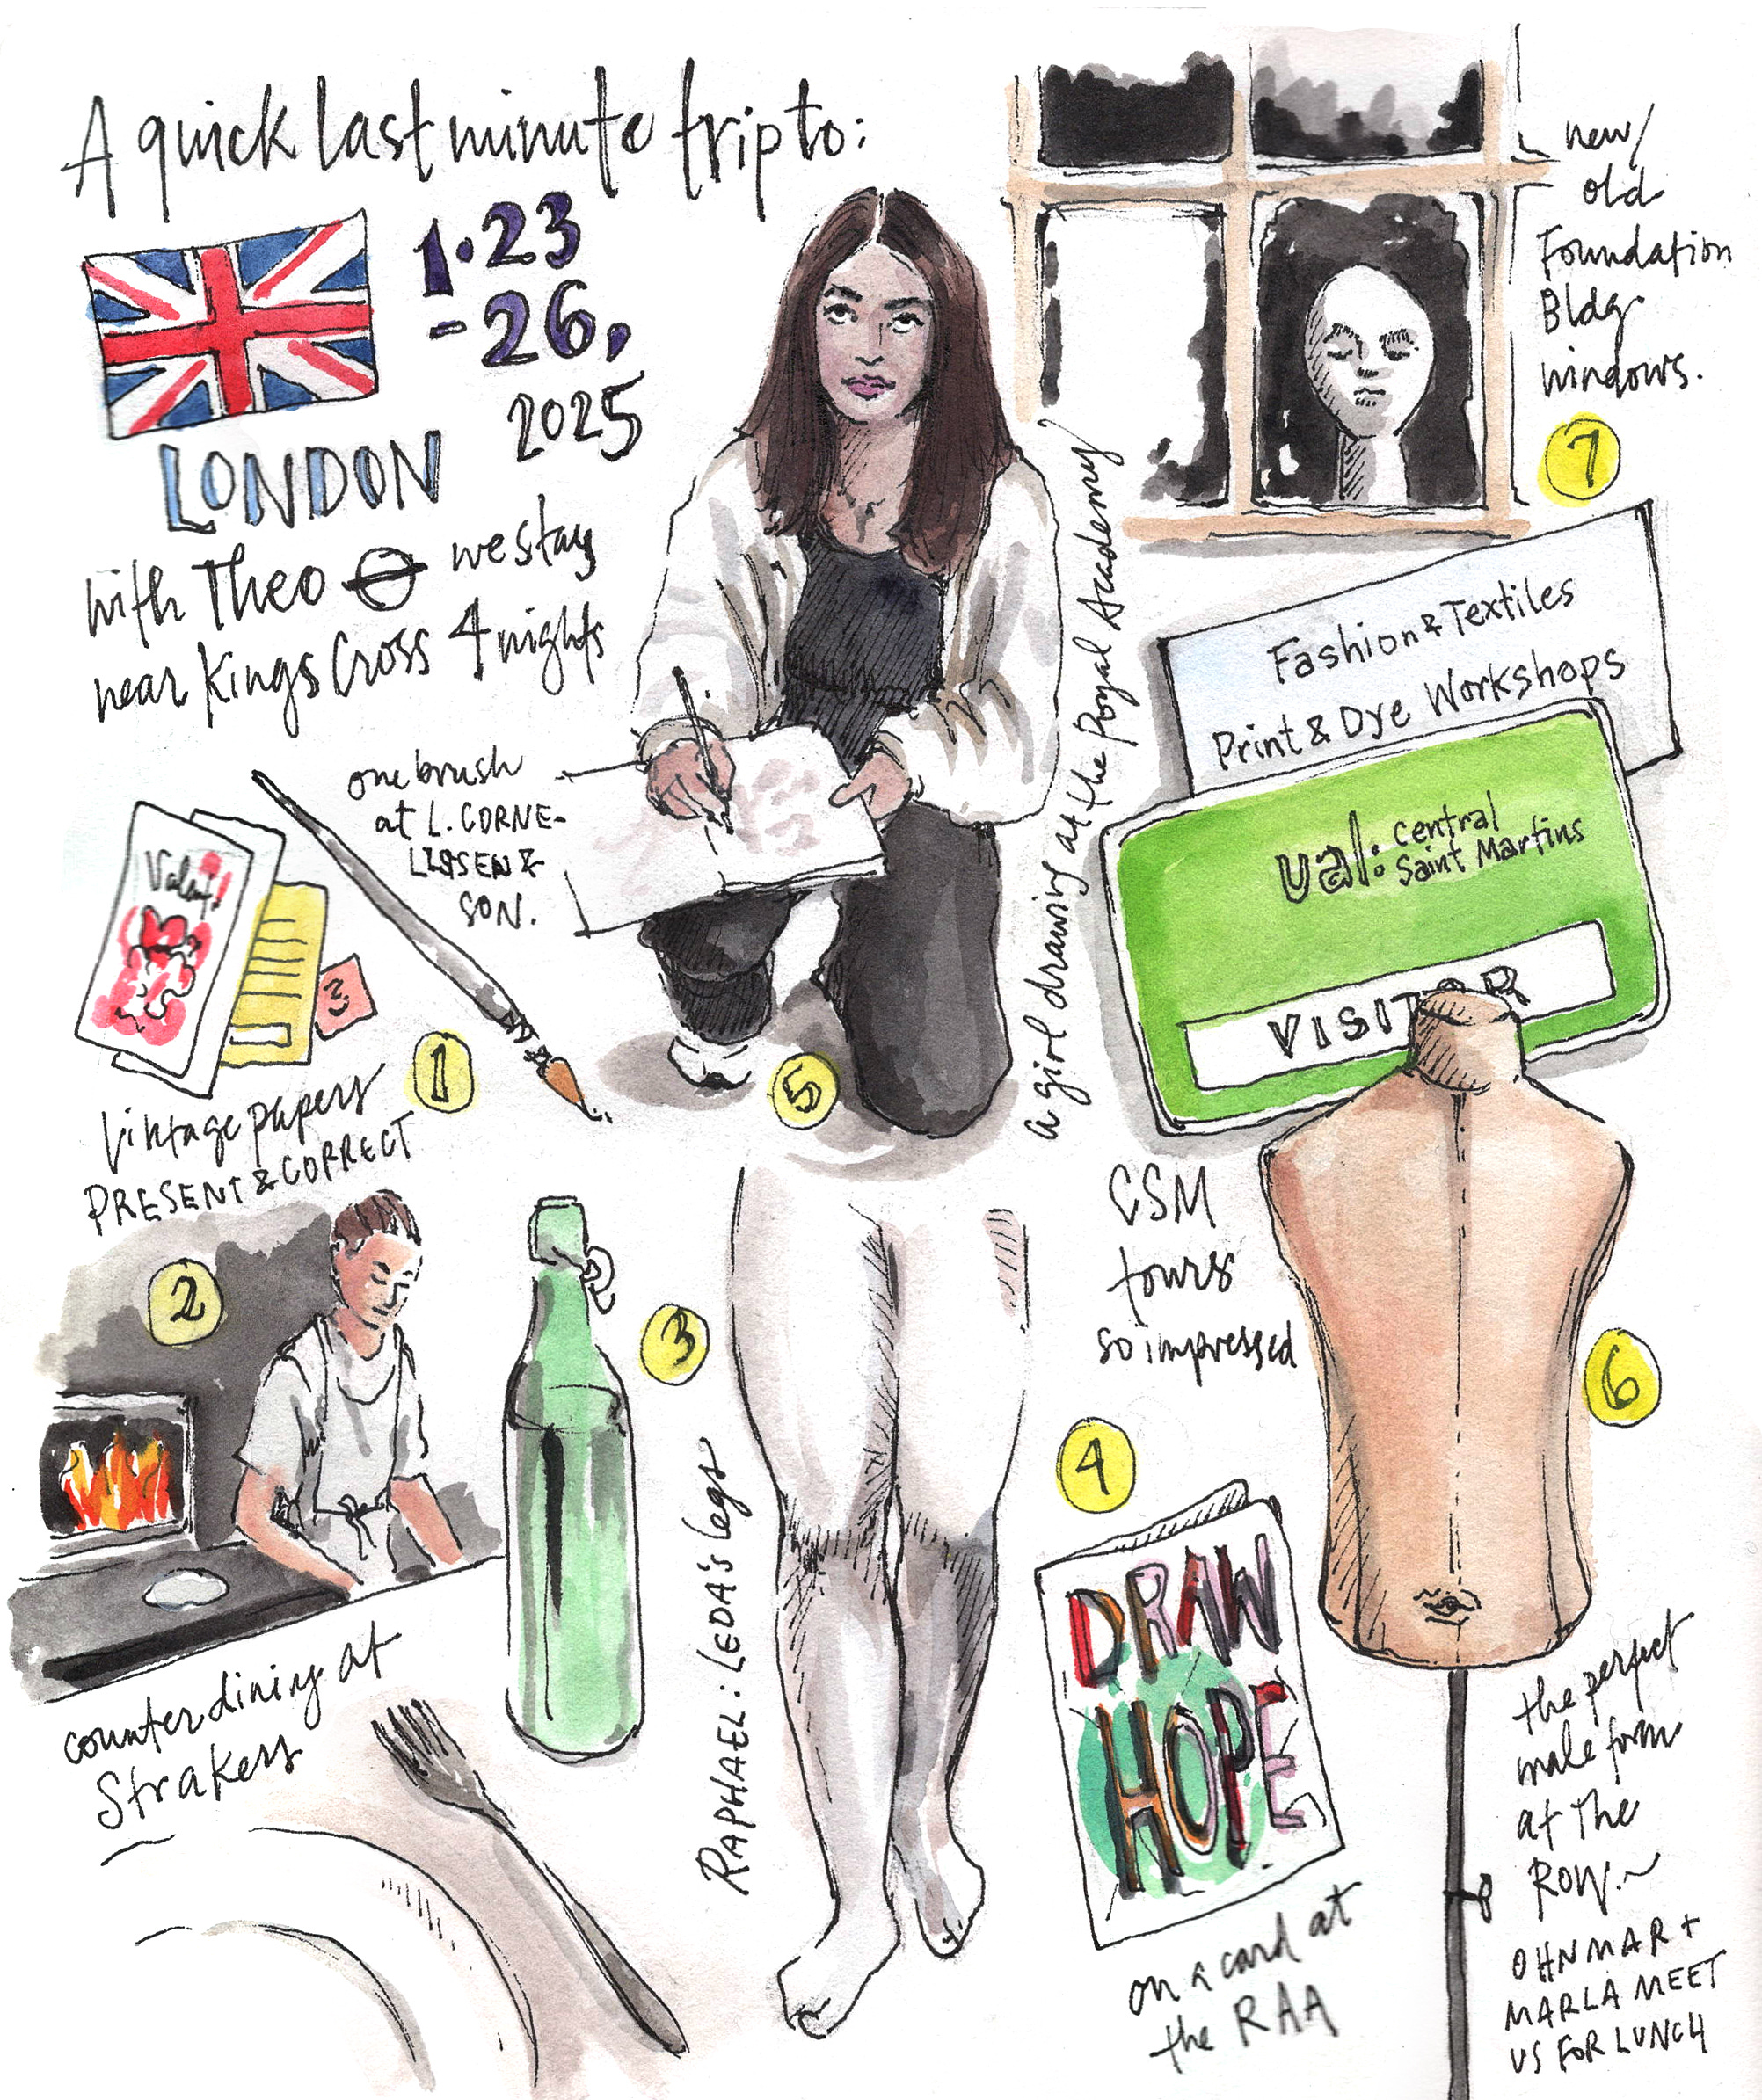 A quick last minute trip to:
1.23
-26,
2025
LONDON
with Theo we stay
near Kings Cross 4 nights
one brush
at L. CORNE-
LISSEN &
SON.
3
1
vintage papers
PRESENT & CORRECT
2
counter dining at
Strakers
3
5
a girl drawing at the Royal Academy
RAPHAEL: LEDA's legs
new/
old
Foundation
Bldg.
windows.
7
Fashion & Textiles
Print & Dye Workshops
ual: central
Saint Martins
VISITOR
CSM
tours
so impressed
6
4
DRAW
HOPE
on a card at
the RAA
the perfect
male form
at The
ROW.~
OHNMAR +
MARLA MEET
US FOR LUNCH